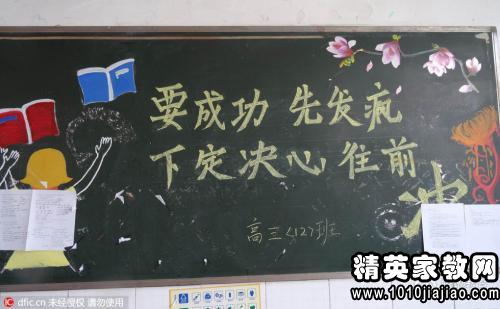 要成功 先发疯
下定决心 往前
冲
高三<12>班
精英家教网
www.1010jiajiao.com
dfic.cn 未经授权 请勿使用